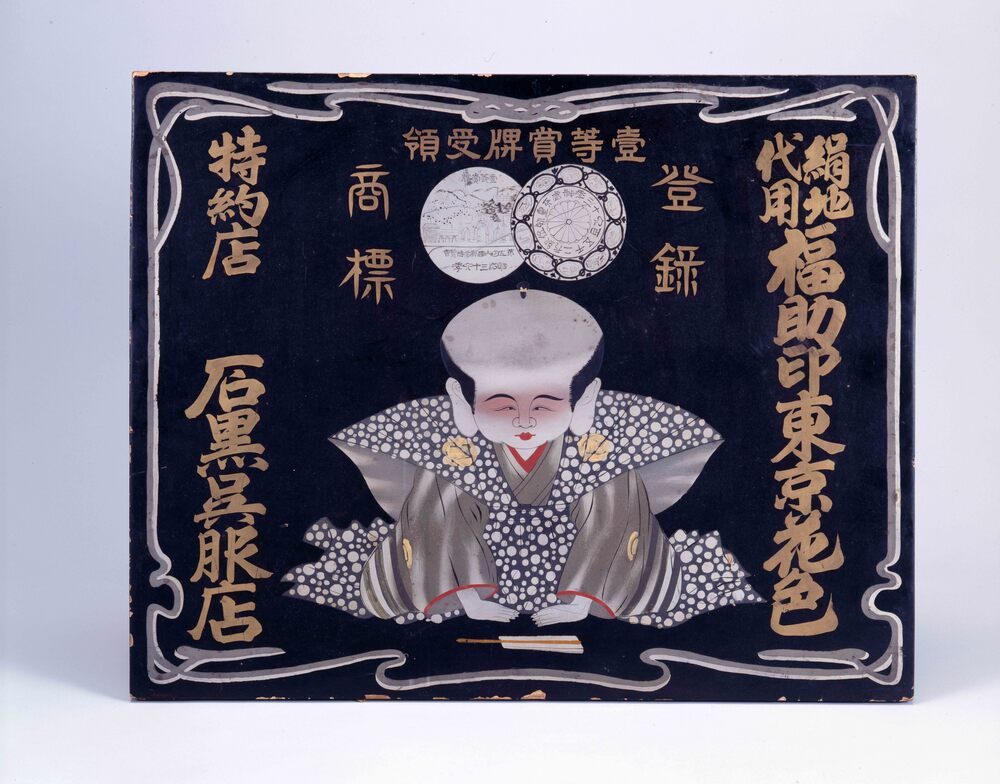 壹等賞牌受領
登録
商標
絹地
代用
福助印東京花色
特約店
石黒呉服店